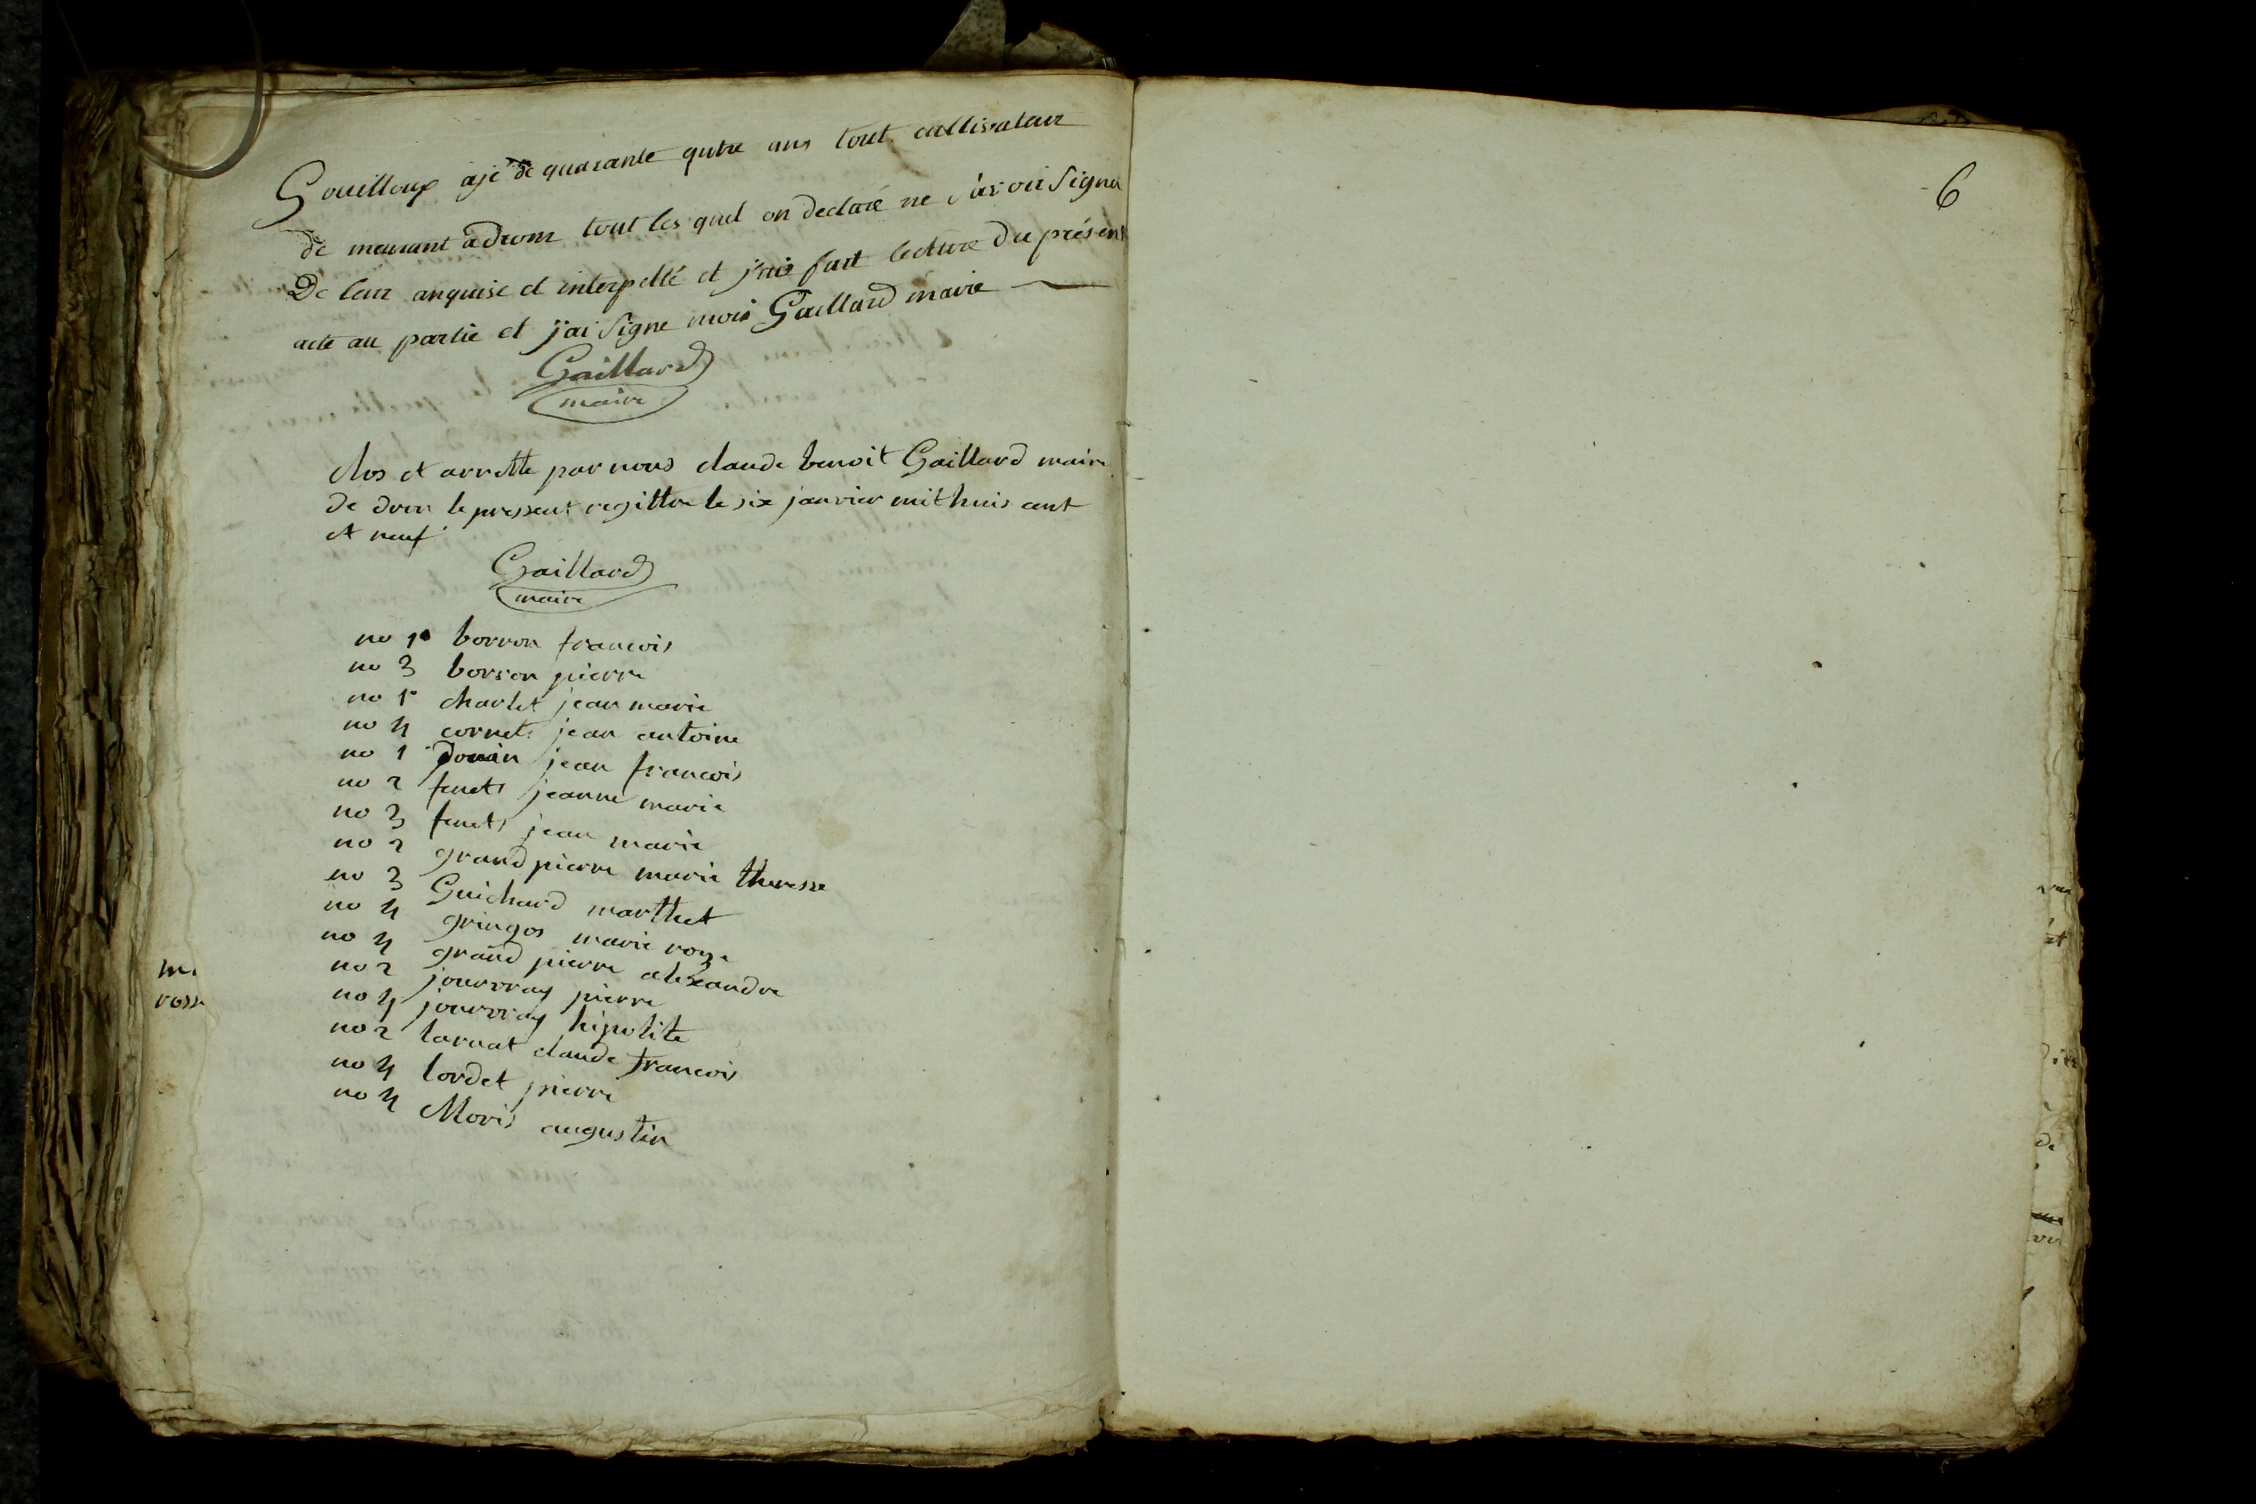 Gouilloux ajé de quarante qutre ans tout cultivateur
de meurant a drom tout les quel on declaré ne savoir signer
De leur anquise et interpellé et jais fait lecture du présent
acte au partie et jai signe mois Gaillard maire
Gaillard
maire
clos et arrette par nous claude benoit Gaillard maire
de drom le pressent regittre le six janvier mit huis cent
et neuf
Gaillard
maire
no 1 borron francois
no 3 borron pierre
no 1 charlet jean marie
no 4 cornet jean antoine
no 1 donin jean francois
no 2 fenet jeanne marie
no 3 fenet jean marie
no 2 grand pierre marie theresse
no 3 Guichard marthet
no 4 gringos marie roze
no 4 grand pierre alexandre
no 2 jourvray pierre
no 4 jourvray hipolite
no 2 larnat claude francois
no 4 lordet pierre
no 4 Moris augustin
6